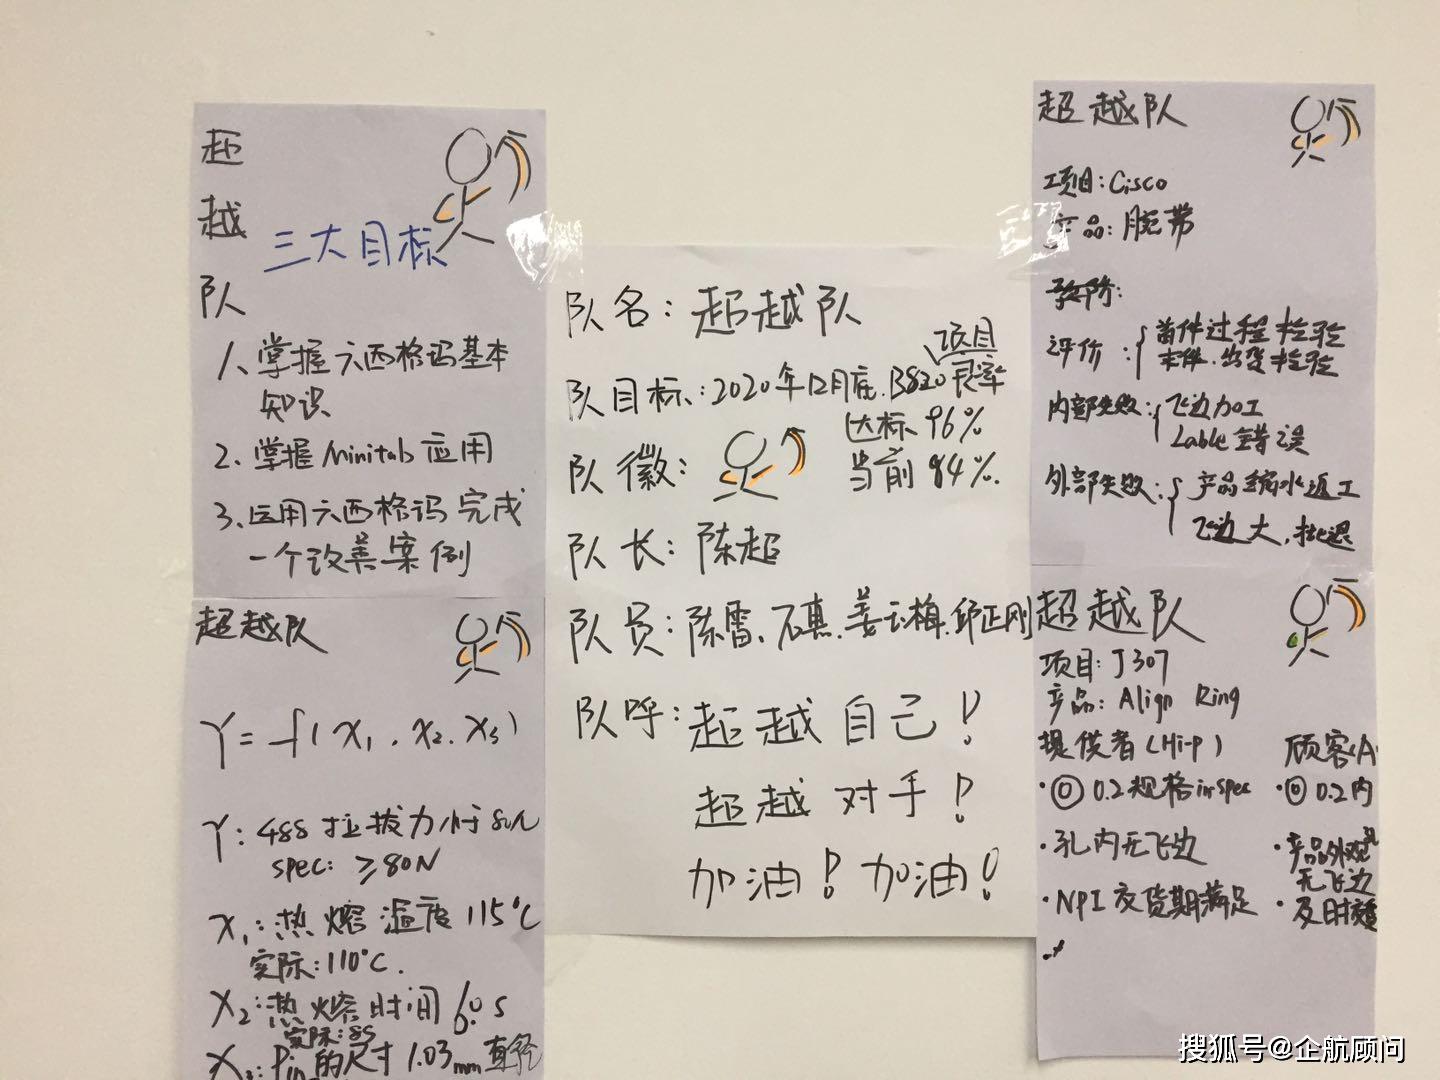 超
越
队
三大目标
1、掌握六西格玛基本
知识
2、掌握Minitab应用
3、运用六西格玛完成
一个改善案例
超越队
Y=f(X₁、X₂、X₃)
Y: 488拉拔力小于80N
spec: ≥80N
X₁:热熔温度115℃
实际:110℃.
X₂:热熔时间6.0s
实际:8s
的尺寸1.03mm直径
队名:超越队
队目标:2020年12月底.B820良率
项目
达标96%
当前84%.
队徽:
队长:陈超
队员:陈雷、石惠、姜云梅、邱正刚
队呼:超越自己!
超越对手!
加油!加油!
超越队
项目:Cisco
产品:腕带
评价:首件过程检验
末件.出货检验
内部失败:飞边加工
Lable错误
外部失败:产品缩水返工
飞边大,批退
超越队
项目:J307
产品:Align Ring
提供者(Hi-p)
·◎0.2规格in spec
·孔内无飞边
·NPI交货期满足
顾客(A
·◎0.2内
·产品外观
无飞边
·及时
搜狐号@企航顾问